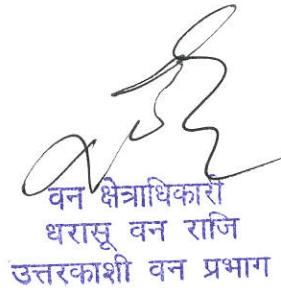 वन क्षेत्राधिकारी
धरासू वन राजि
उत्तरकाशी वन प्रभाग